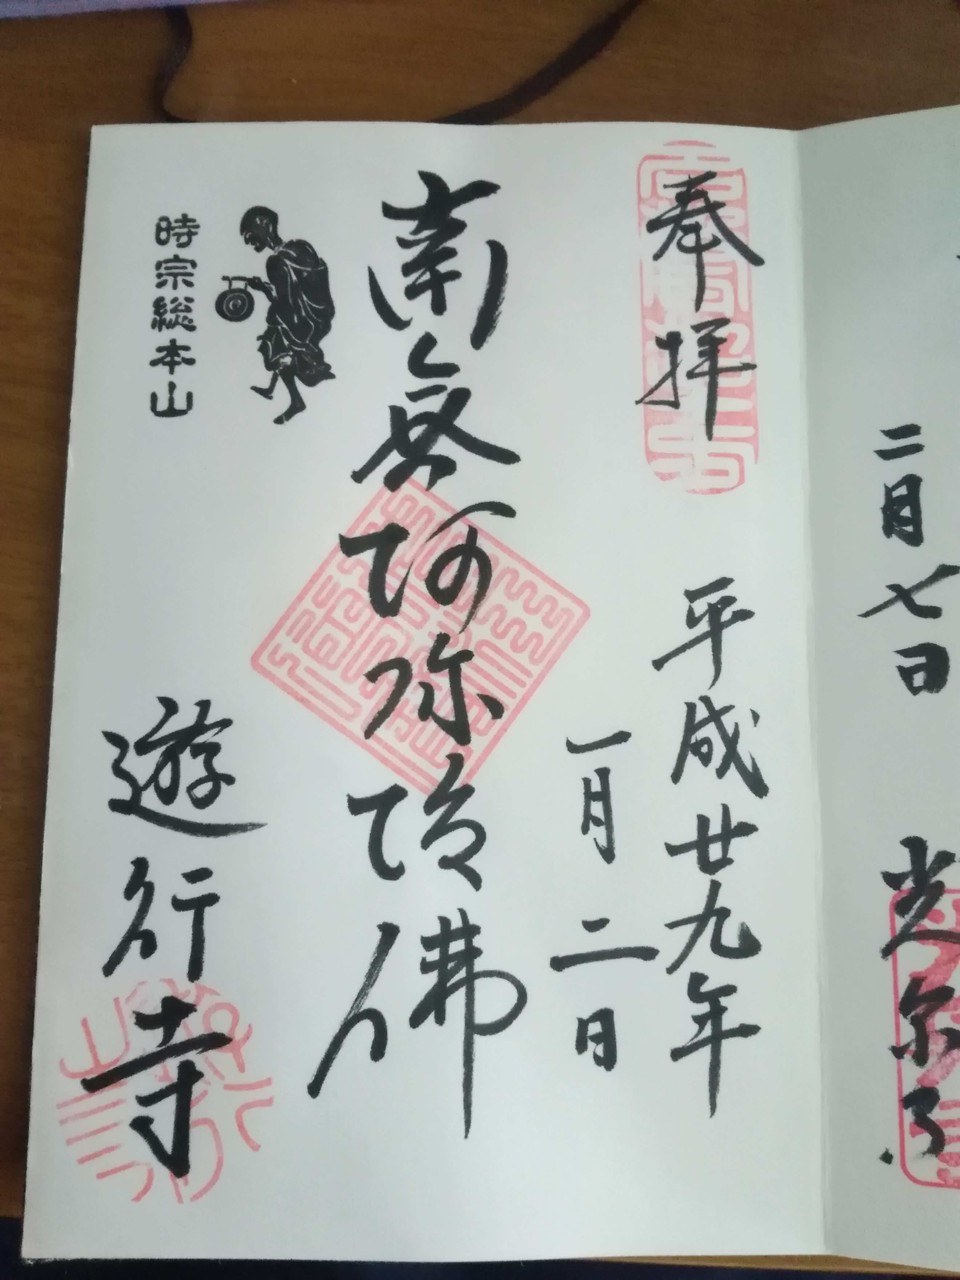 二月七日
奉拝
平成廿九年
一月二日
南無阿弥陀佛
時宗総本山
遊行寺